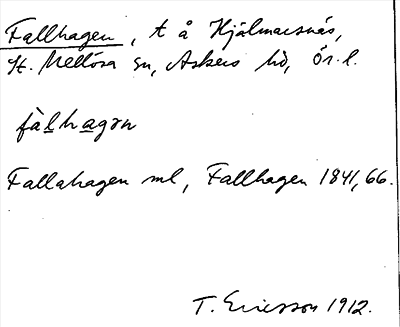 Fallhagen, t å Hjälmarsnäs,
St. Mellösa sn, Askers hd, Ör. l.
fàlhagɘn
Fallahagen ml, Fallhagen 1841, 66.
T. Ericsson 1912.